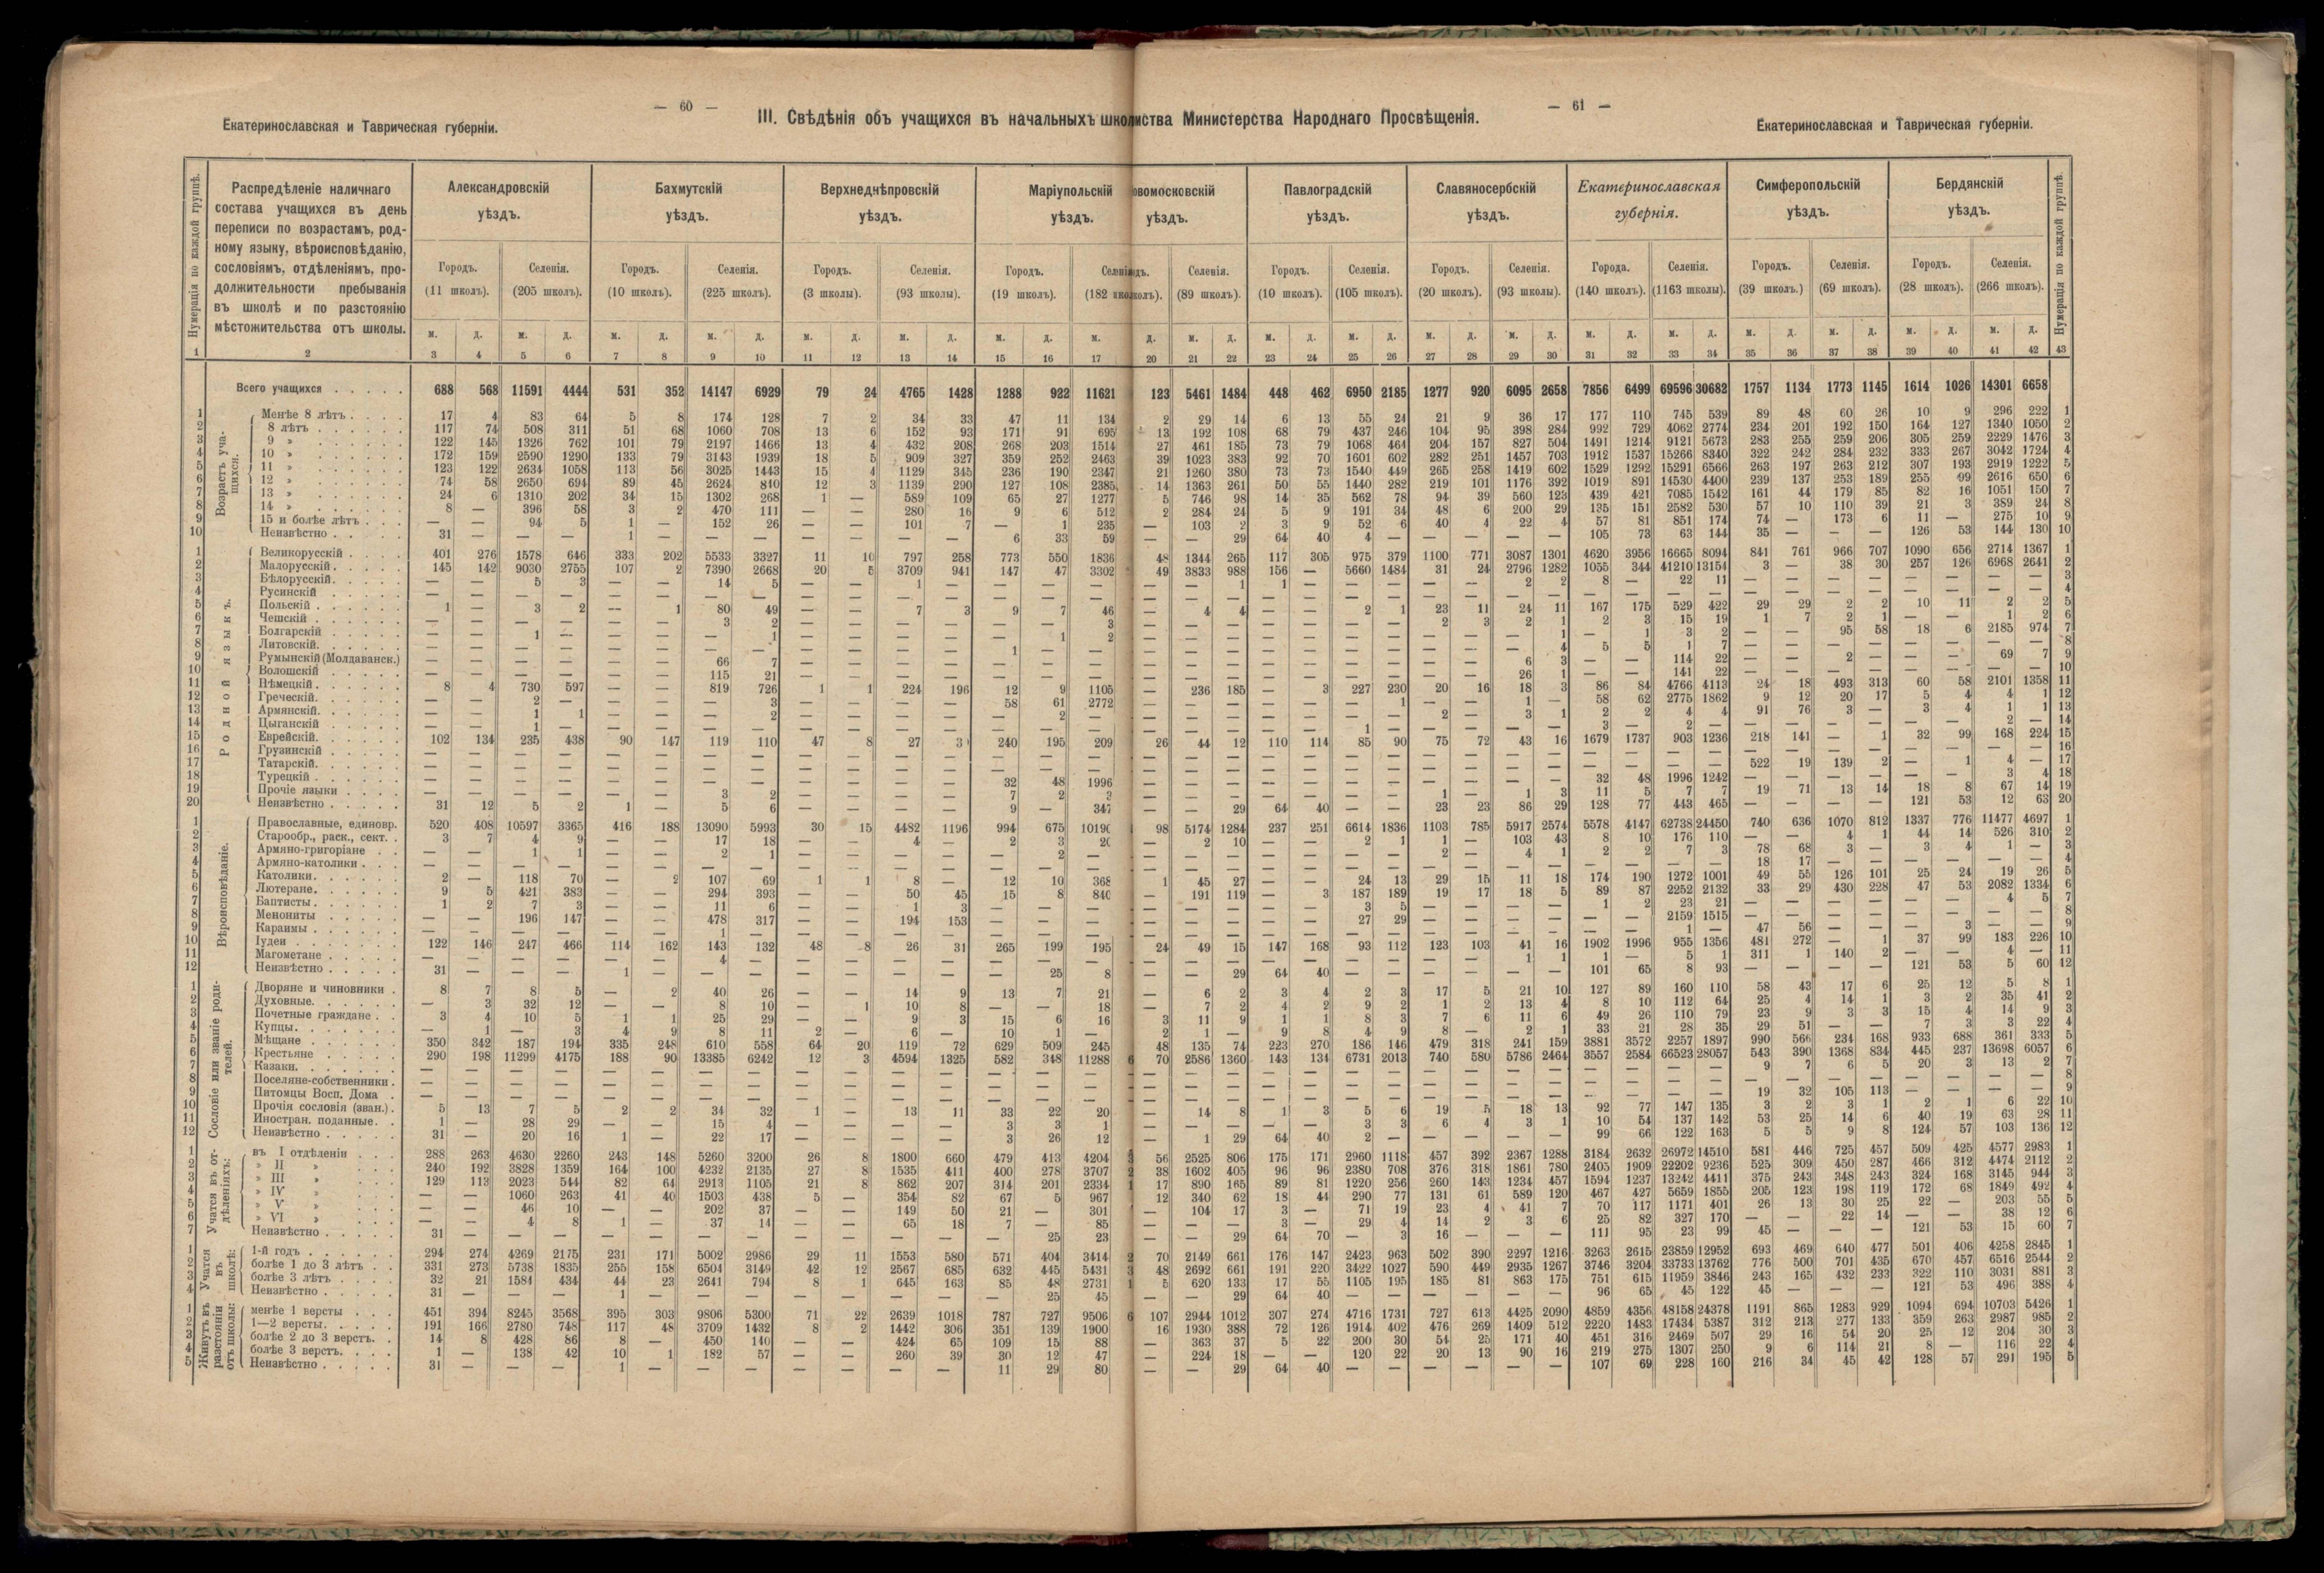 — 60 —
— 61 —
Екатеринославская и Таврическая губерніи.
III. Свѣдѣнія объ учащихся въ начальныхъ школ
иства Министерства Народнаго Просвѣщенія.
Екатеринославская и Таврическая губерніи.
Нумерація по каждой группѣ.
Распредѣленіе наличнаго
состава учащихся въ день
переписи по возрастамъ, род-
ному языку, вѣроисповѣданію,
сословіямъ, отдѣленіямъ, про-
должительности пребыванія
въ школѣ и по разстоянію
мѣстожительства отъ школы.
Александровскій уѣздъ.
Бахмутскій уѣздъ.
Верхнеднѣпровскій уѣздъ.
Маріупольскій уѣздъ.
овомосковскій уѣздъ.
Павлоградскій уѣздъ.
Славяносербскій уѣздъ.
Екатеринославская губернія.
Симферопольскій уѣздъ.
Бердянскій уѣздъ.
Нумерація по каждой группѣ.
Городъ. Селенія. Городъ. Селенія. Городъ. Селенія. Городъ. Селенія Селенія. Городъ. Селенія. Городъ. Селенія. Города. Селенія. Городъ. Селенія. Городъ. Селенія.
(11 школъ). (205 школъ). (10 школъ). (225 школъ). (3 школы). (93 школы). (19 школъ). (182 (89 школъ). (10 школъ). (105 школъ). (20 школъ). (93 школы). (140 школъ). (1163 школы). (39 школъ.) (69 школъ). (28 школъ). (266 школъ).
м. д. м. д. м. д. м. д. м. д. м. д. м. д. м. д. м. д. м. д. м. д. м. д. м. д. м. д. м. д. м. д. м. д. м. д. м. д.
1 2 3 4 5 6 7 8 9 10 11 12 13 14 15 16 17 20 21 22 23 24 25 26 27 28 29 30 31 32 33 34 35 36 37 38 39 40 41 42 43
Всего учащихся 688 568 11591 4444 531 352 14147 6929 79 24 4765 1428 1288 922 11621 123 5461 1484 448 462 6950 2185 1277 920 6095 2658 7856 6499 69596 30682 1757 1134 1773 1145 1614 1026 14301 6658
Возрастъ уча-щихся.
1 Менѣе 8 лѣтъ 17 4 83 64 5 8 174 128 7 2 34 33 47 11 134 2 29 14 6 13 55 24 21 9 36 17 177 110 745 539 89 48 60 26 10 9 296 222 1
2 8 лѣтъ 117 74 508 311 51 68 1060 708 13 6 152 93 171 91 695 13 192 108 68 79 437 246 104 95 398 284 992 729 4062 2774 234 201 192 150 164 127 1340 1050 2
3 9 » 122 145 1326 762 101 79 2197 1466 13 4 432 208 268 203 1514 27 461 185 73 79 1068 464 204 157 827 504 1491 1214 9121 5673 283 255 259 206 305 259 2229 1476 3
4 10 » 172 159 2590 1290 133 79 3143 1939 18 5 909 327 359 252 2463 39 1023 383 92 70 1601 602 282 251 1457 703 1912 1537 15266 8340 322 242 284 232 333 267 3042 1724 4
5 11 » 123 122 2634 1058 113 56 3025 1443 15 4 1129 345 236 190 2347 21 1260 380 73 73 1540 449 265 258 1419 602 1529 1292 15291 6566 263 197 263 212 307 193 2919 1222 5
6 12 » 74 58 2650 694 89 45 2624 810 12 3 1139 290 127 108 2385 14 1363 261 50 55 1440 282 219 101 1176 392 1019 891 14530 4400 239 137 253 189 255 99 2616 650 6
7 13 » 24 6 1310 202 34 15 1302 268 1 — 589 109 65 27 1277 5 746 98 14 35 562 78 94 39 560 123 439 421 7085 1542 161 44 179 85 82 16 1051 150 7
8 14 » 8 — 396 58 3 2 470 111 — — 280 16 9 6 512 2 284 24 5 9 191 34 48 6 200 29 135 151 2582 530 57 10 110 39 21 3 389 24 8
9 15 и болѣе лѣтъ — — 94 5 1 — 152 26 — — 101 7 — 1 235 — 103 2 3 9 52 6 40 4 22 4 57 81 851 174 74 — 173 6 11 — 275 10 9
10 Неизвѣстно 31 — — — 1 — — — — — — — 6 33 59 — — 29 64 40 4 — — — — — 105 73 63 144 35 — — — 126 53 144 130 10
Родной языкъ.
1 Великорусскій 401 276 1578 646 333 202 5533 3327 11 10 797 258 773 550 1836 48 1344 265 117 305 975 379 1100 771 3087 1301 4620 3956 16665 8094 841 761 966 707 1090 656 2714 1367 1
2 Малорусскій 145 142 9030 2755 107 2 7390 2668 20 5 3709 941 147 47 3302 49 3833 988 156 — 5660 1484 31 24 2796 1282 1055 344 41210 13154 3 — 38 30 257 126 6968 2641 2
3 Бѣлорусскій — — 5 3 — — 14 5 — — 1 — — — — — — 1 1 — — — — — 2 2 8 — 22 11 — — — — — — — — 3
4 Русинскій — — — — — — — — — — — — — — — — — — — — — — — — — — — — — — — — — — — — — — 4
5 Польскій 1 — 3 2 — 1 80 49 — — 7 3 9 7 46 — 4 4 — — 2 1 23 11 24 11 167 175 529 422 29 29 2 2 10 11 2 2 5
6 Чешскій — — — — — — 3 2 — — — — — — 3 — — — — — — — 2 3 2 1 2 3 15 19 1 7 2 1 — — 1 2 6
7 Болгарскій — — 1 — — — — 1 — — — — — 1 2 — — — — — — — — — — 1 — 1 3 2 — — 95 58 18 6 2185 974 7
8 Литовскій — — — — — — — — — — — — 1 — — — — — — — — — — — — 4 5 5 1 7 — — — — — — — — 8
9 Румынскій (Молдаванск.) — — — — — — 66 7 — — — — — — — — — — — — — — — — 6 3 — — 114 22 — — 2 — — — 69 7 9
10 Волошскій — — — — — — 115 21 — — — — — — — — — — — — — — — — 26 1 — — 141 22 — — — — — — — — 10
11 Нѣмецкій 8 4 730 597 — — 819 726 1 1 224 196 12 9 1105 — 236 185 — 3 227 230 20 16 18 3 86 84 4766 4113 24 18 493 313 60 58 2101 1358 11
12 Греческій — — 2 — — — — 3 — — — — 58 61 2772 — — — — — — 1 — — 1 — 58 62 2775 1862 9 12 20 17 5 4 4 1 12
13 Армянскій — — 1 1 — — — 2 — — — — — 2 — — — — — — — — 2 — 3 1 2 2 4 4 91 76 3 — 3 4 1 1 13
14 Цыганскій — — 1 — — — — — — — — — — — — — — — — — 1 — — — — — 3 — 2 — — — — — — — 2 — 14
15 Еврейскій 102 134 235 438 90 147 119 110 47 8 27 3 240 195 209 26 44 12 110 114 85 90 75 72 43 16 1679 1737 903 1236 218 141 — 1 32 99 168 224 15
16 Грузинскій — — — — — — — — — — — — — — — — — — — — — — — — — — — — — — — — — — — — — — 16
17 Татарскій — — — — — — — — — — — — — — — — — — — — — — — — — — — — — — 522 19 139 2 — 1 4 — 17
18 Турецкій — — — — — — — — — — — — 32 48 1996 — — — — — — — — — — — 32 48 1996 1242 — — — — — — 3 4 18
19 Прочіе языки — — — — — — 3 2 — — — — 7 2 3 — — — — — — — 1 — 1 3 11 5 7 7 19 71 13 14 18 8 67 14 19
20 Неизвѣстно 31 12 5 2 1 — 5 6 — — — — 9 — 347 — — 29 64 40 — — 23 23 86 29 128 77 443 465 — — — — 121 53 12 63 20
Вѣроисповѣданіе.
1 Православные, единовр. 520 408 10597 3365 416 188 13090 5993 30 15 4482 1196 994 675 1019 98 5174 1284 237 251 6614 1836 1103 785 5917 2574 5578 4147 62738 24450 740 636 1070 812 1337 776 11477 4697 1
2 Старообр., раск., сект. 3 7 4 9 — — 17 18 — — 4 — 2 3 2 — 2 10 — — 2 1 1 — 103 43 8 10 176 110 — — 4 1 44 14 526 310 2
3 Армяно-григоріане — — 1 1 — — 2 1 — — — — — 2 — — — — — — — — 2 — 4 1 2 2 7 3 78 68 3 — 3 4 1 — 3
4 Армяно-католики — — — — — — — — — — — — — — — — — — — — — — — — — — — — — — 18 17 — — — — — — 4
5 Католики 2 — 118 70 — 2 107 69 1 1 8 — 12 10 368 1 45 27 — — 24 13 29 15 11 18 174 190 1272 1001 49 55 126 101 25 24 19 26 5
6 Лютеране 9 5 421 383 — — 294 393 — — 50 45 15 8 840 — 191 119 — 3 187 189 19 17 18 5 89 87 2252 2132 33 29 430 228 47 53 2082 1334 6
7 Баптисты 1 2 7 3 — — 11 6 — — 1 3 — — — — — — — — 3 5 — — — — 1 2 23 21 — — — — — — 4 5 7
8 Менониты — — 196 147 — — 478 317 — — 194 153 — — — — — — — — 27 29 — — — — — — 2159 1515 — — — — — — — — 8
9 Караимы — — — — — — 1 — — — — — — — — — — — — — — — — — — — — — 1 — 47 56 — — — 3 — — 9
10 Іудеи 122 146 247 466 114 162 143 132 48 8 26 31 265 199 195 24 49 15 147 168 93 112 123 103 41 16 1902 1996 955 1356 481 272 — 1 37 99 183 226 10
11 Магометане — — — — — — 4 — — — — — — — — — — — — — — — — — 1 1 1 — 5 1 311 1 140 2 — — 4 — 11
12 Неизвѣстно 31 — — — 1 — — — — — — — — 25 8 — — 29 64 40 — — — — — — 101 65 8 93 — — — — 121 53 5 60 12
Сословіе или званіе роди-телей.
1 Дворяне и чиновники 8 7 8 5 — 2 40 26 — — 14 9 13 7 21 — 6 2 3 4 2 3 17 5 21 10 127 89 160 110 58 43 17 6 25 12 5 8 1
2 Духовные — 3 32 12 — — 8 10 — 1 10 8 — — 18 — 7 2 4 2 9 2 1 2 13 4 8 10 112 64 25 4 14 1 3 2 35 41 2
3 Почетные граждане 3 4 10 5 1 1 25 29 — — 9 3 15 6 16 3 11 9 1 1 8 3 7 6 11 6 49 26 110 79 23 9 3 3 15 4 14 9 3
4 Купцы — 1 — 3 4 9 8 11 2 — 6 — 10 1 — 2 1 — 9 8 4 9 8 — 2 1 33 21 28 35 29 51 — — 7 3 3 22 4
5 Мѣщане 350 342 187 194 335 248 610 558 64 20 119 72 629 509 245 48 135 74 223 270 186 146 479 318 241 159 3881 3572 2257 1897 990 566 234 168 933 688 361 333 5
6 Крестьяне 290 198 11299 4175 188 90 13385 6242 12 3 4594 1325 582 348 11288 70 2586 1360 143 134 6731 2013 740 580 5786 2464 3557 2584 66523 28057 543 390 1368 834 445 237 13698 6057 6
7 Казаки — — — — — — — — — — — — — — — — — — — — — — — — — — — — — — 9 7 6 5 20 3 13 2 7
8 Поселяне-собственники — — — — — — — — — — — — — — — — — — — — — — — — — — — — — — — — — — — — — — 8
9 Питомцы Восп. Дома — — — — — — — — — — — — — — — — — — — — — — — — — — — — — — 19 32 105 113 — — — — 9
10 Прочія сословія (зван.) 5 13 7 5 2 2 34 32 1 — 13 11 33 22 20 — 14 8 1 3 5 6 19 5 18 13 92 77 147 135 3 2 3 1 2 1 6 22 10
11 Иностран. поданные 1 — 28 29 — — 15 4 — — — — 3 3 1 — — — — — 3 3 6 4 3 1 10 54 137 142 53 25 14 6 40 19 63 28 11
12 Неизвѣстно 31 — 20 16 1 — 22 17 — — — — 3 26 12 — 1 29 64 40 2 — — — — — 99 66 122 163 5 5 9 8 124 57 103 136 12
Учатся въ от-дѣленіяхъ:
1 въ I отдѣленіи 288 263 4630 2260 243 148 5260 3200 26 8 1800 660 479 413 4204 56 2525 806 175 171 2960 1118 457 392 2367 1288 3184 2632 26972 14510 581 446 725 457 509 425 4577 2983 1
2 » II » 240 192 3828 1359 164 100 4232 2135 27 8 1535 411 400 278 3707 38 1602 405 96 96 2380 708 376 318 1861 780 2405 1909 22202 9236 525 309 450 287 466 312 4474 2112 2
3 » III » 129 113 2023 544 82 64 2913 1105 21 8 862 207 314 201 2334 17 890 165 89 81 1220 256 260 143 1234 457 1594 1237 13242 4411 375 243 348 243 324 168 3145 944 3
4 » IV » — — 1060 263 41 40 1503 438 5 — 354 82 67 5 967 12 340 62 18 44 290 77 131 61 589 120 467 427 5659 1855 205 123 198 119 172 68 1849 492 4
5 » V » — — 46 10 — — 202 37 — — 149 50 21 — 301 — 104 17 3 — 71 19 23 4 41 7 70 117 1171 401 26 13 30 25 22 — 203 55 5
6 » VI » — — 4 8 1 — 37 14 — — 65 18 7 — 85 — — — 3 — 29 4 14 2 3 6 25 82 327 170 — — 22 14 — — 38 12 6
7 Неизвѣстно 31 — — — — — — — — — — — — 25 23 — — 29 64 70 — 3 16 — — — 111 95 23 99 45 — — — 121 53 15 60 7
Учатся въ школѣ:
1 1-й годъ 294 274 4269 2175 231 171 5002 2986 29 11 1553 580 571 404 3414 70 2149 661 176 147 2423 963 502 390 2297 1216 3263 2615 23859 12952 693 469 640 477 501 406 4258 2845 1
2 болѣе 1 до 3 лѣтъ 331 273 5738 1835 255 158 6504 3149 42 12 2567 685 632 445 5431 48 2692 661 191 220 3422 1027 590 449 2935 1267 3746 3204 33733 13762 776 500 701 435 670 457 6516 2544 2
3 болѣе 3 лѣтъ 32 21 1584 434 44 23 2641 794 8 1 645 163 85 48 2731 5 620 133 17 55 1105 195 185 81 863 175 751 615 11959 3846 243 165 432 233 322 110 3031 881 3
4 Неизвѣстно 31 — — — 1 — — — — — — — — 25 45 — — 29 64 40 — — — — — — 96 65 45 122 45 — — — 121 53 496 388 4
Живутъ въ разстояніи отъ школы:
1 менѣе 1 версты 451 394 8245 3568 395 303 9806 5300 71 22 2639 1018 787 727 9506 107 2944 1012 307 274 4716 1731 727 613 4425 2090 4859 4356 48158 24378 1191 865 1283 929 1094 694 10703 5426 1
2 1—2 версты 191 166 2780 748 117 48 3709 1432 8 2 1442 306 351 139 1900 16 1930 388 72 126 1914 402 476 269 1409 512 2220 1483 17434 5387 312 213 277 133 359 263 2987 985 2
3 болѣе 2 до 3 верстъ 14 8 428 86 8 — 450 140 — — 424 65 109 15 88 — 363 37 5 22 200 30 54 25 171 40 451 316 2469 507 29 16 54 20 25 12 204 30 3
4 болѣе 3 верстъ 1 — 138 42 10 1 182 57 — — 260 39 30 12 47 — 224 18 — — 120 22 20 13 90 16 219 275 1307 250 9 6 114 21 8 — 116 22 4
5 Неизвѣстно 31 — — — 1 — — — — — — — 11 29 80 — — 29 64 40 — — — — — — 107 69 228 160 216 34 45 42 128 57 291 195 5